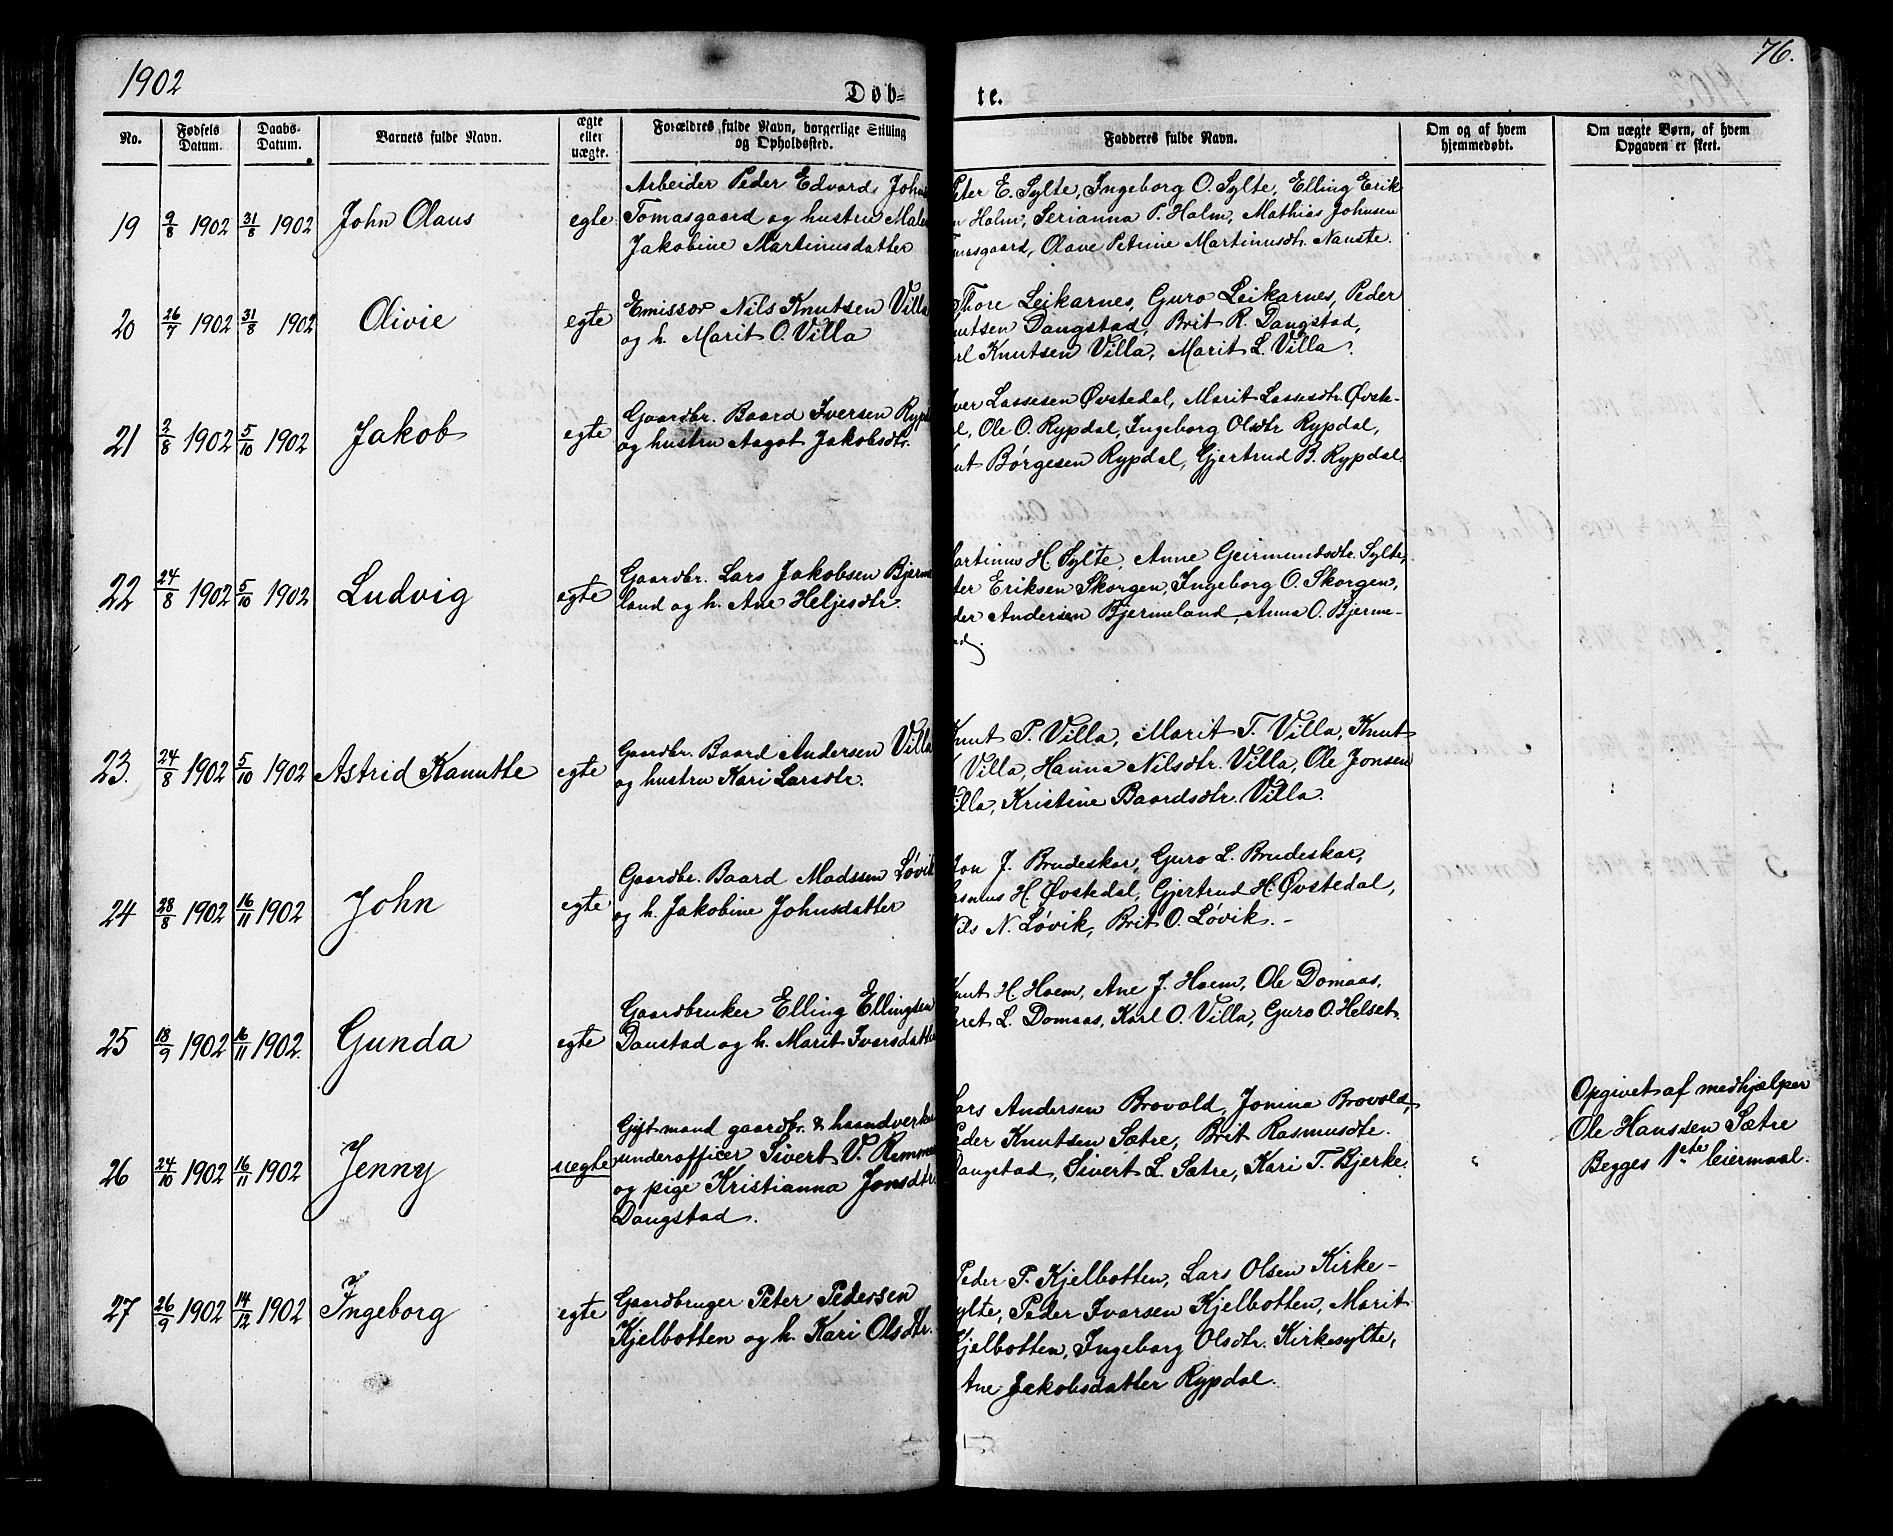 1902
76.
Døb=
te.
No.
Fødsels Datum.
Daabs-Datum.
Barnets fulde Navn.
ægte eller uægte.
Forældres fulde Navn, borgerlige Stilling og Opholdssted.
Fadderes fulde Navn.
Om og af hvem hjemmedøbt.
Om uægte Børn, af hvem Opgaven er skeet.
19 9/8 1902 31/8 1902 John Olaus egte
Arbeider Peder Edvard Johns
Tomasgaard og hustru Malen
Jakobine Martinusdatter
Peter E. Sylte, Ingeborg O. Sylte, Elling Erik
n Holm, Serianna P. Holm, Mathias Johnsen
masgaard, Olave Petrine Martinusdtr. Nauste.
20 26/7 1902 31/8 1902 Olivie egte
Emissær Nils Knutsen Villa
og h. Marit O. Villa
Thore Leikarnes, Guro Leikarnes, Peder
nutsen Dangstad, Brit R. Dangstad,
rl Knutsen Villa, Marit L. Villa.
21 2/8 1902 5/10 1902 Jakob egte
Gaardbr. Baard Iversen Rypd
og hustru Aagot Jakobsdtr.
Iver Lassesen Øvstedal, Marit Lassesdtr. Øvste-
l, Ole O. Rypdal, Ingeborg Olsdtr Rypdal,
nut Børgesen Rypdal, Gjertrud B. Rypdal.
22 24/8 1902 5/10 1902 Ludvig egte
Gaardbr. Lars Jakobsen Bjerme
land og h. Ane Heljesdtr.
artinus H. Sylte, Anne Geirmundsdtr. Sylte,
ter Eriksen Skorgen, Ingeborg O. Skorgen,
der Andersen Bjermeland, Anna O. Bjerme-
nd.
23. 24/8 1902 5/10 1902 Astrid Kanutte egte
Gaardbr. Baard Andersen Villa
og hustru Kari Larsdtr.
Knut P. Villa, Marit T. Villa, Knut
Villa, Hanna Nilsdtr. Villa, Ole Jonsen
Villa, Kristine Baardsdtr. Villa.
24 28/8 1902 16/11 1902 John egte
Gaardbr. Baard Madssen Løvik
og h. Jakobine Johnsdatter
Jon J. Brudeskar, Guro L. Brudeskar,
asmus H. Øvstedal, Gjertrud H. Øvstedal,
Nils N. Løvik, Brit O. Løvik. -
25 18/9 1902 16/11 1902 Gunda egte
Gaardbruker Elling Ellingsen
Daustad og h. Marit Ivarsdatter
Knut H. Hoem, Ane J. Hoem, Ole Domaas,
aret L. Domaas, Karl O. Villa, Guro O. Helset.
26 24/10 1902 16/11 1902 Jenny uegte
Gift mand gaardbr. & haandverker
underofficer Sivert V. Remmem
og pige Kristianna Jonsdtr.
Dangstad.
Lars Andersen Brovold, Jonina Brovold,
Peder Knutsen Sætre, Brit Rasmusdtr.
Dangstad, Sivert L. Sætre, Kari T. Bjerke.
Opgivet af medhjælper
Ole Hanssen Sætre
Begges 1ste leiermaal.
27 26/9 1902 14/12 1902 Ingeborg egte
Gaardbruger Peter Pedersen
Kjelbotten og h. Kari Olsdtr.
Peder P. Kjelbotten, Lars Olsen Kirke-
sylte, Peder Ivarsen Kjelbotten, Marit
Kjelbotten, Ingeborg Olsdtr. Kirkesylte,
Ane Jakobsdatter Rypdal.